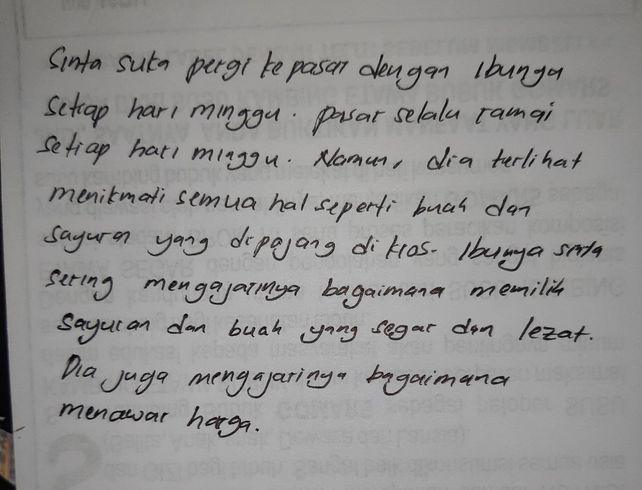 Sinta suka pergi ke pasar dengan Ibunya
Setiap hari minggu. pasar selalu ramai
Setiap hari minggu. Namun, dia terlihat
menikmati semua hal seperti buah dan
sayuran yang dipajang di kios. Ibunya sinta
sering mengajarinya bagaimana memilih
sayuran dan buah yang segar dan lezat.
Dia juga mengajarinya bagaimana
menawar harga.